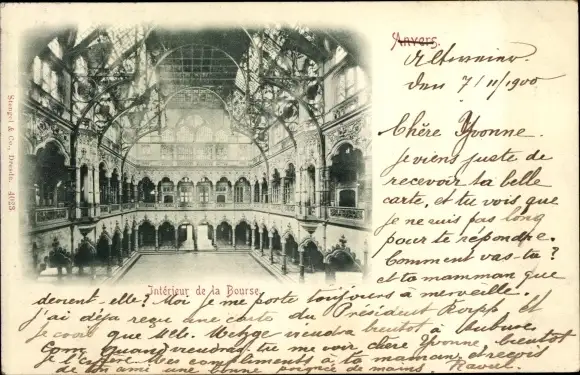 Anvers.
den 7/11/1900
Chère Yvonne.
je viens juste de
recevoir ta belle
carte, et tu vois que
je ne suis pas long
pour te répondre.
Comment vas-tu?
et ta mamman que
Intérieur de la Bourse.
Stengel & Co., Dresde. 4023
devent-elle? Moi je me porte toujours à merveille.
j'ai déja reçu une carte du Président et
je crois que Mlle. viendra bientot à
quand viendras-tu me voir chère Yvonne, bientot
je mes compliments à ta maman, et reçois
de ton ami une bonne poignée de mains